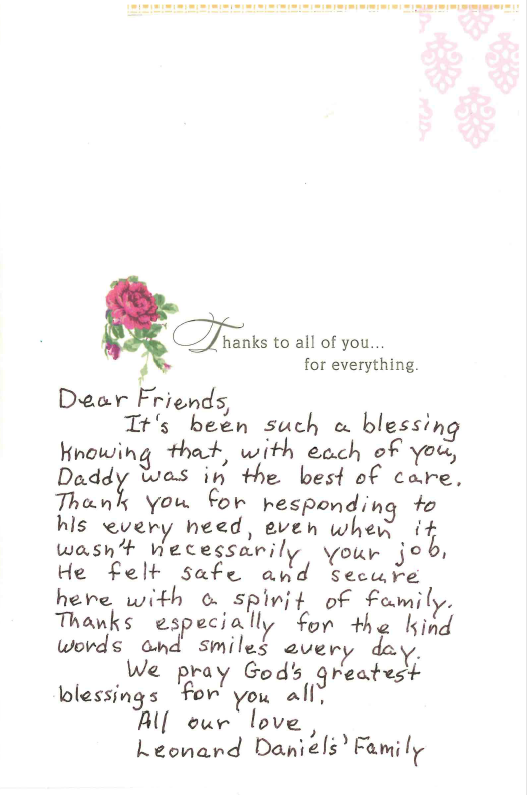 Thanks to all of you...
for everything.
Dear Friends,
It's been such a blessing
knowing that, with each of you,
Daddy was in the best of care.
Thank you for responding to
his every need, even when it
wasn't necessarily your job.
He felt safe and secure
here with a spirit of family.
Thanks especially for the kind
words and smiles every day.
We pray God's greatest
blessings for you all.
All our love,
Leonard Daniels' Family